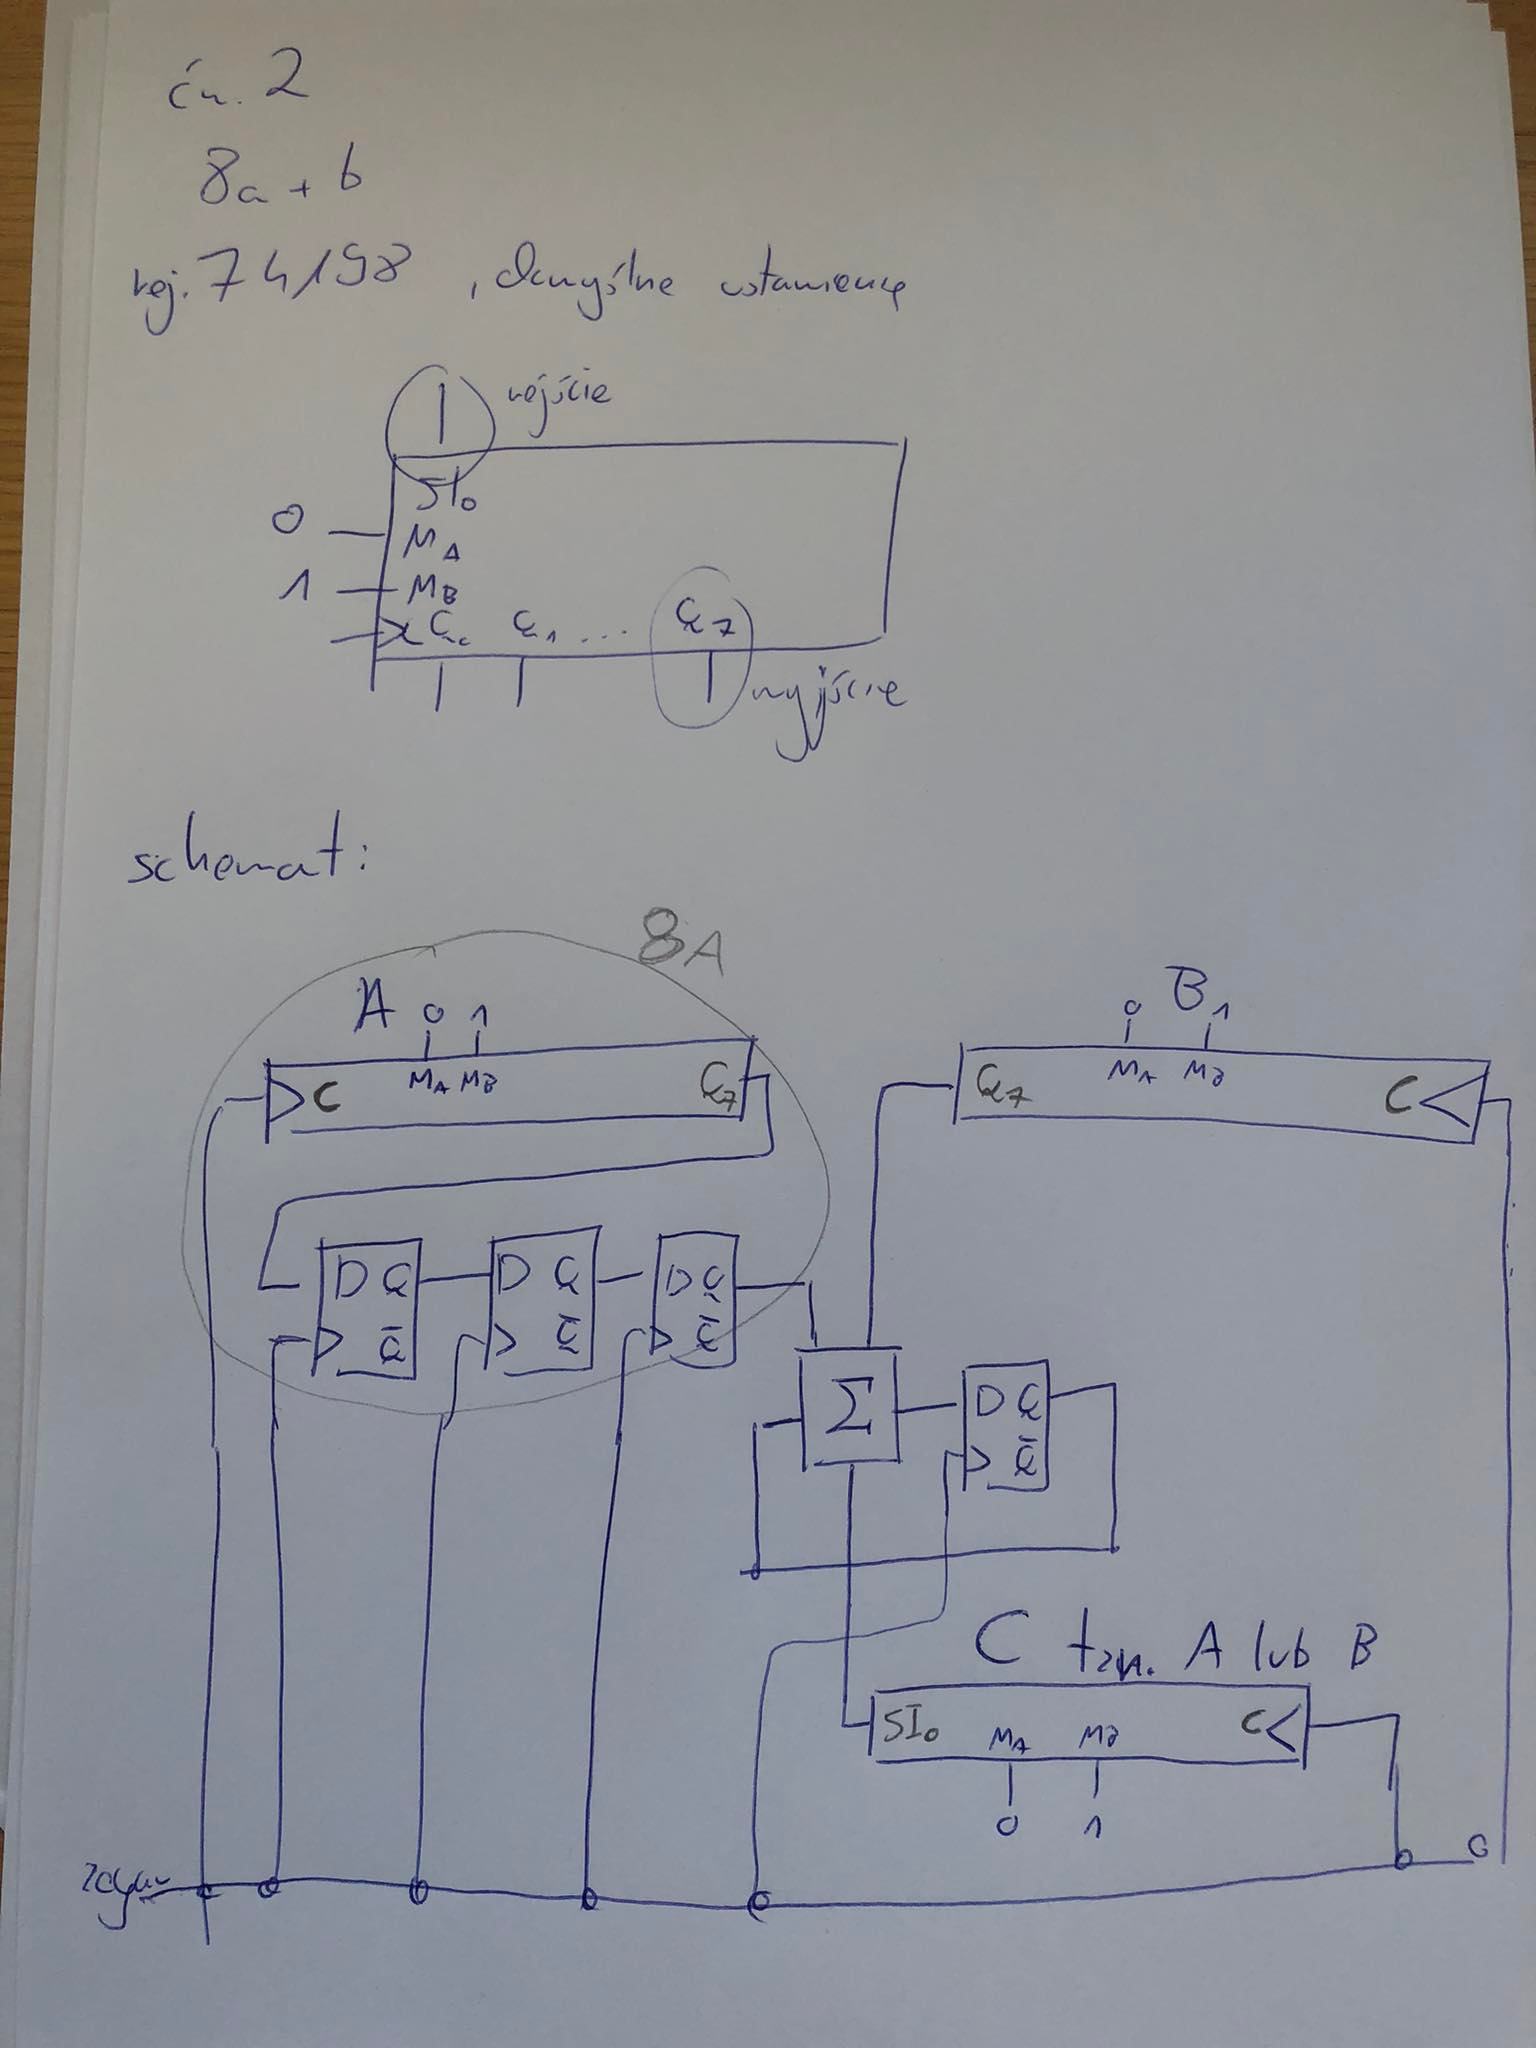 ćw. 2
8a + b
rej. 74198 , domyślne ustawienie
wejście
SI₀
0 M_A
1 M_B
Q₀ Q₁ ... Q₇
wyjście
schemat:
8A
A 0 1
C M_A M_B Q₇
B
0 1
Q₇ M_A M_B C
D Q D Q D Q
Q̅ Q̅ Q̅
Σ D Q
Q̅
C tzn. A lub B
SI₀ M_A M_B C
0 1
zegar